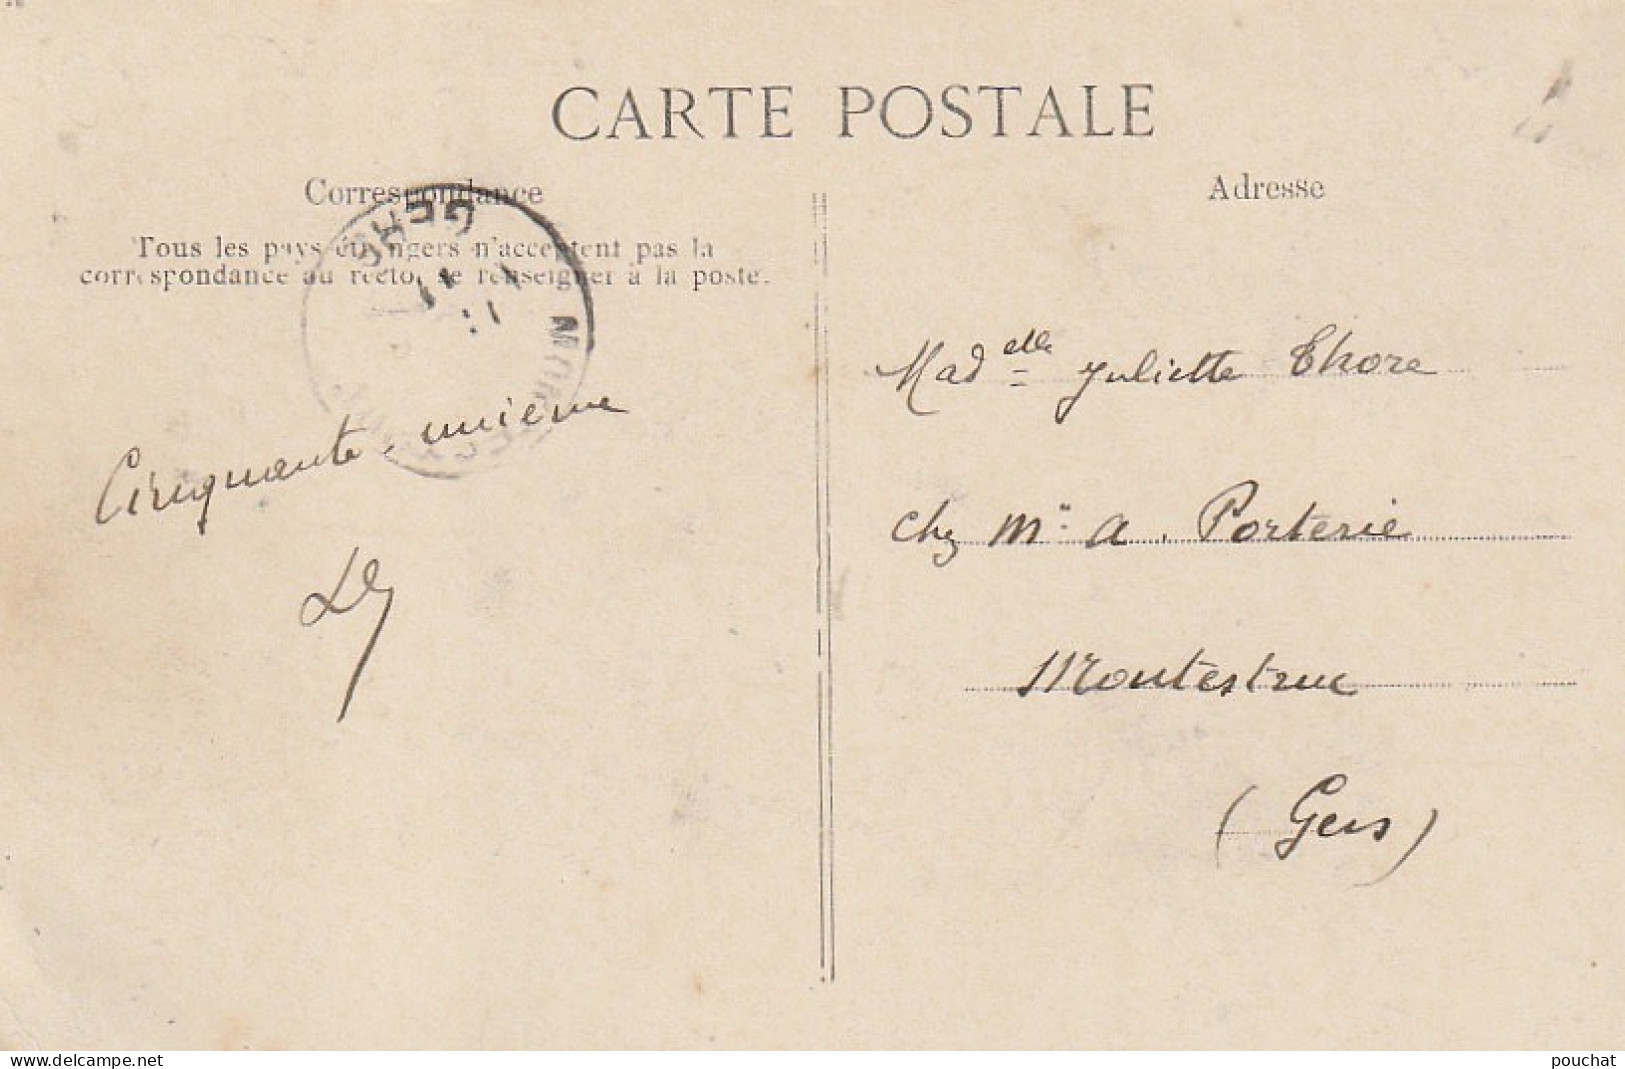 CARTE POSTALE
Correspondance
Tous les pays étrangers n'acceptent pas la
correspondance au recto, se renseigner à la poste.
GERS
11
Cinquante-unième
Adresse
Mad elle Juliette Thore
chez Mr A. Porterie
Montestruc
(Gers)
www.delcampe.net
pouchat